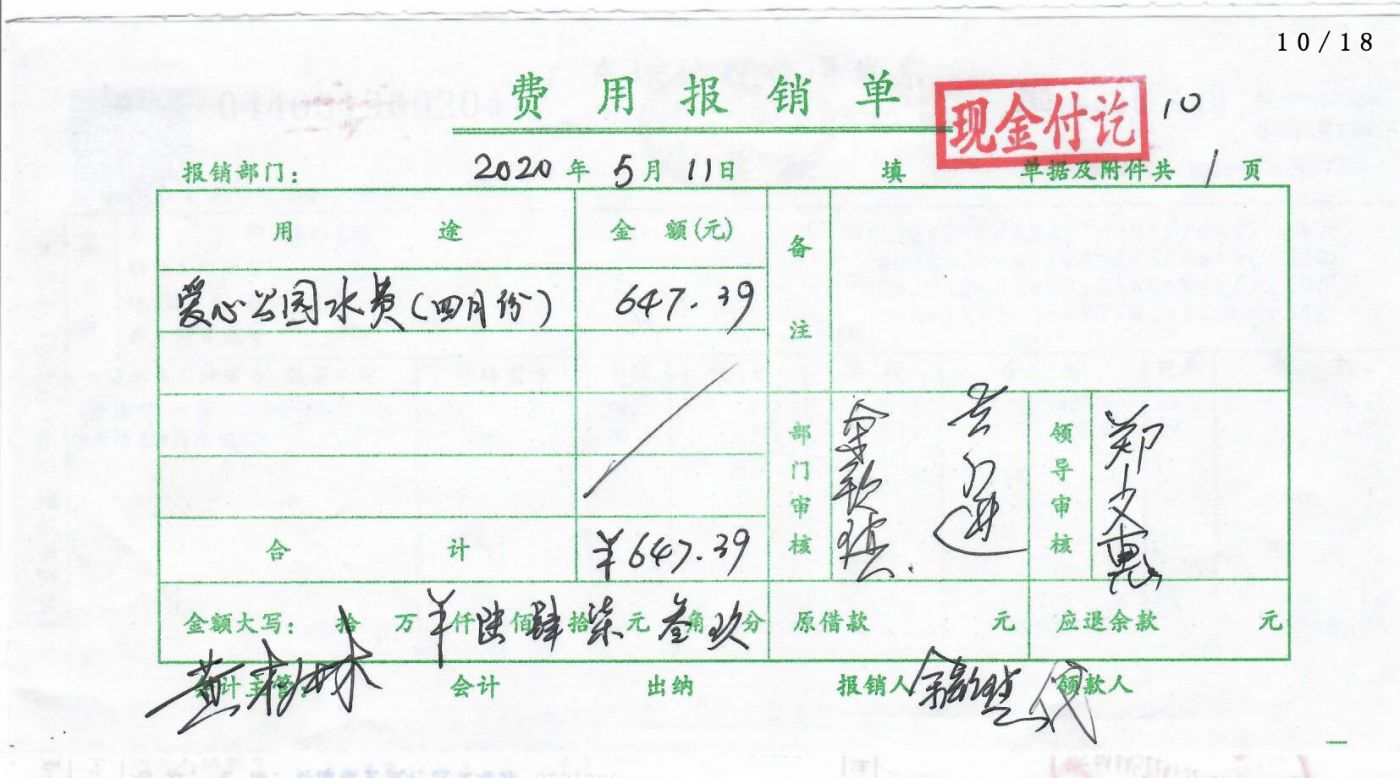 10/18
费用报销单 现金付讫 10
报销部门: 2020年5月11日 填 单据及附件共1页
用途 金额(元) 备注
爱心公园水费(四月份) 647.39
合计 ¥647.39
部门审核 领导审核 郑文惠
金额大写: 拾万¥仟陆佰肆拾柒元叁角玖分 原借款 元 应退余款 元
会计主管 会计 出纳 报销人 领款人